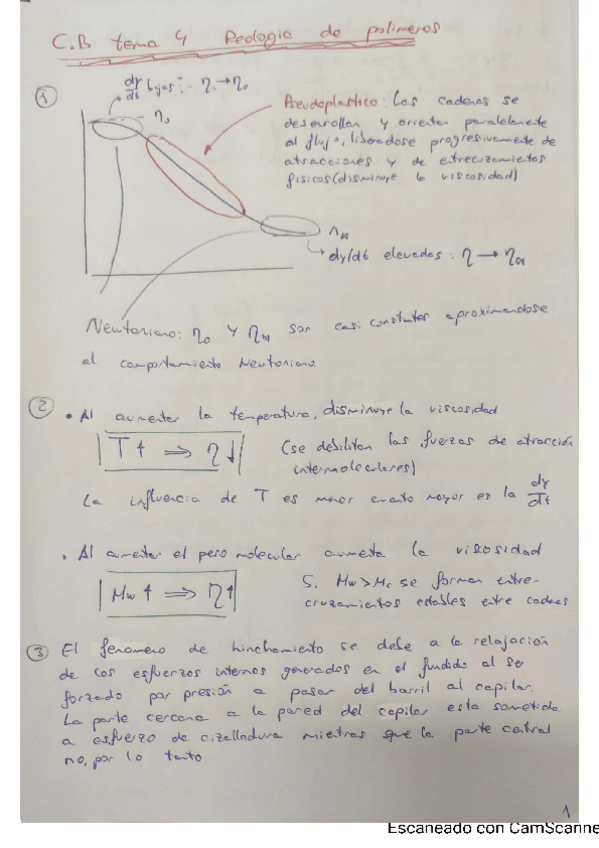 C.B tema 4 Reologia de polimeros
1
dγ/dt bajas: η → η₀
η₀
Pseudoplastico: Las cadenas se
desarrollan y orientan paralelamente
al flujo, liberandose progresivamente de
atracciones y de entrecruzamientos
fisicos (disminuye la viscosidad)
dγ/dt elevadas: η →
Newtoniano: η₀ y son casi constantes aproximandose
al comportamiento Newtoniano
2
• Al aumentar la temperatura, disminuye la viscosidad
T↑ ⇒ η↓
(se debilitan las fuerzas de atracción
intermoleculares)
La influencia de T es menor cuanto mayor es la dγ/dt
• Al aumentar el peso molecular aumenta la viscosidad
Mw ↑ ⇒ η↑
Si Mw>Mc se forman entre-
cruzamientos estables entre cadenas
3 El fenomeno de hinchamiento se debe a la relajación
de los esfuerzos internos generados en el fundido al ser
forzado por presión a pasar del barril al capilar.
La parte cercana a la pared del capilar esta sometida
a esfuerzo de cizalladura mientras que la parte central
no, por lo tanto
1
Escaneado con CamScanne